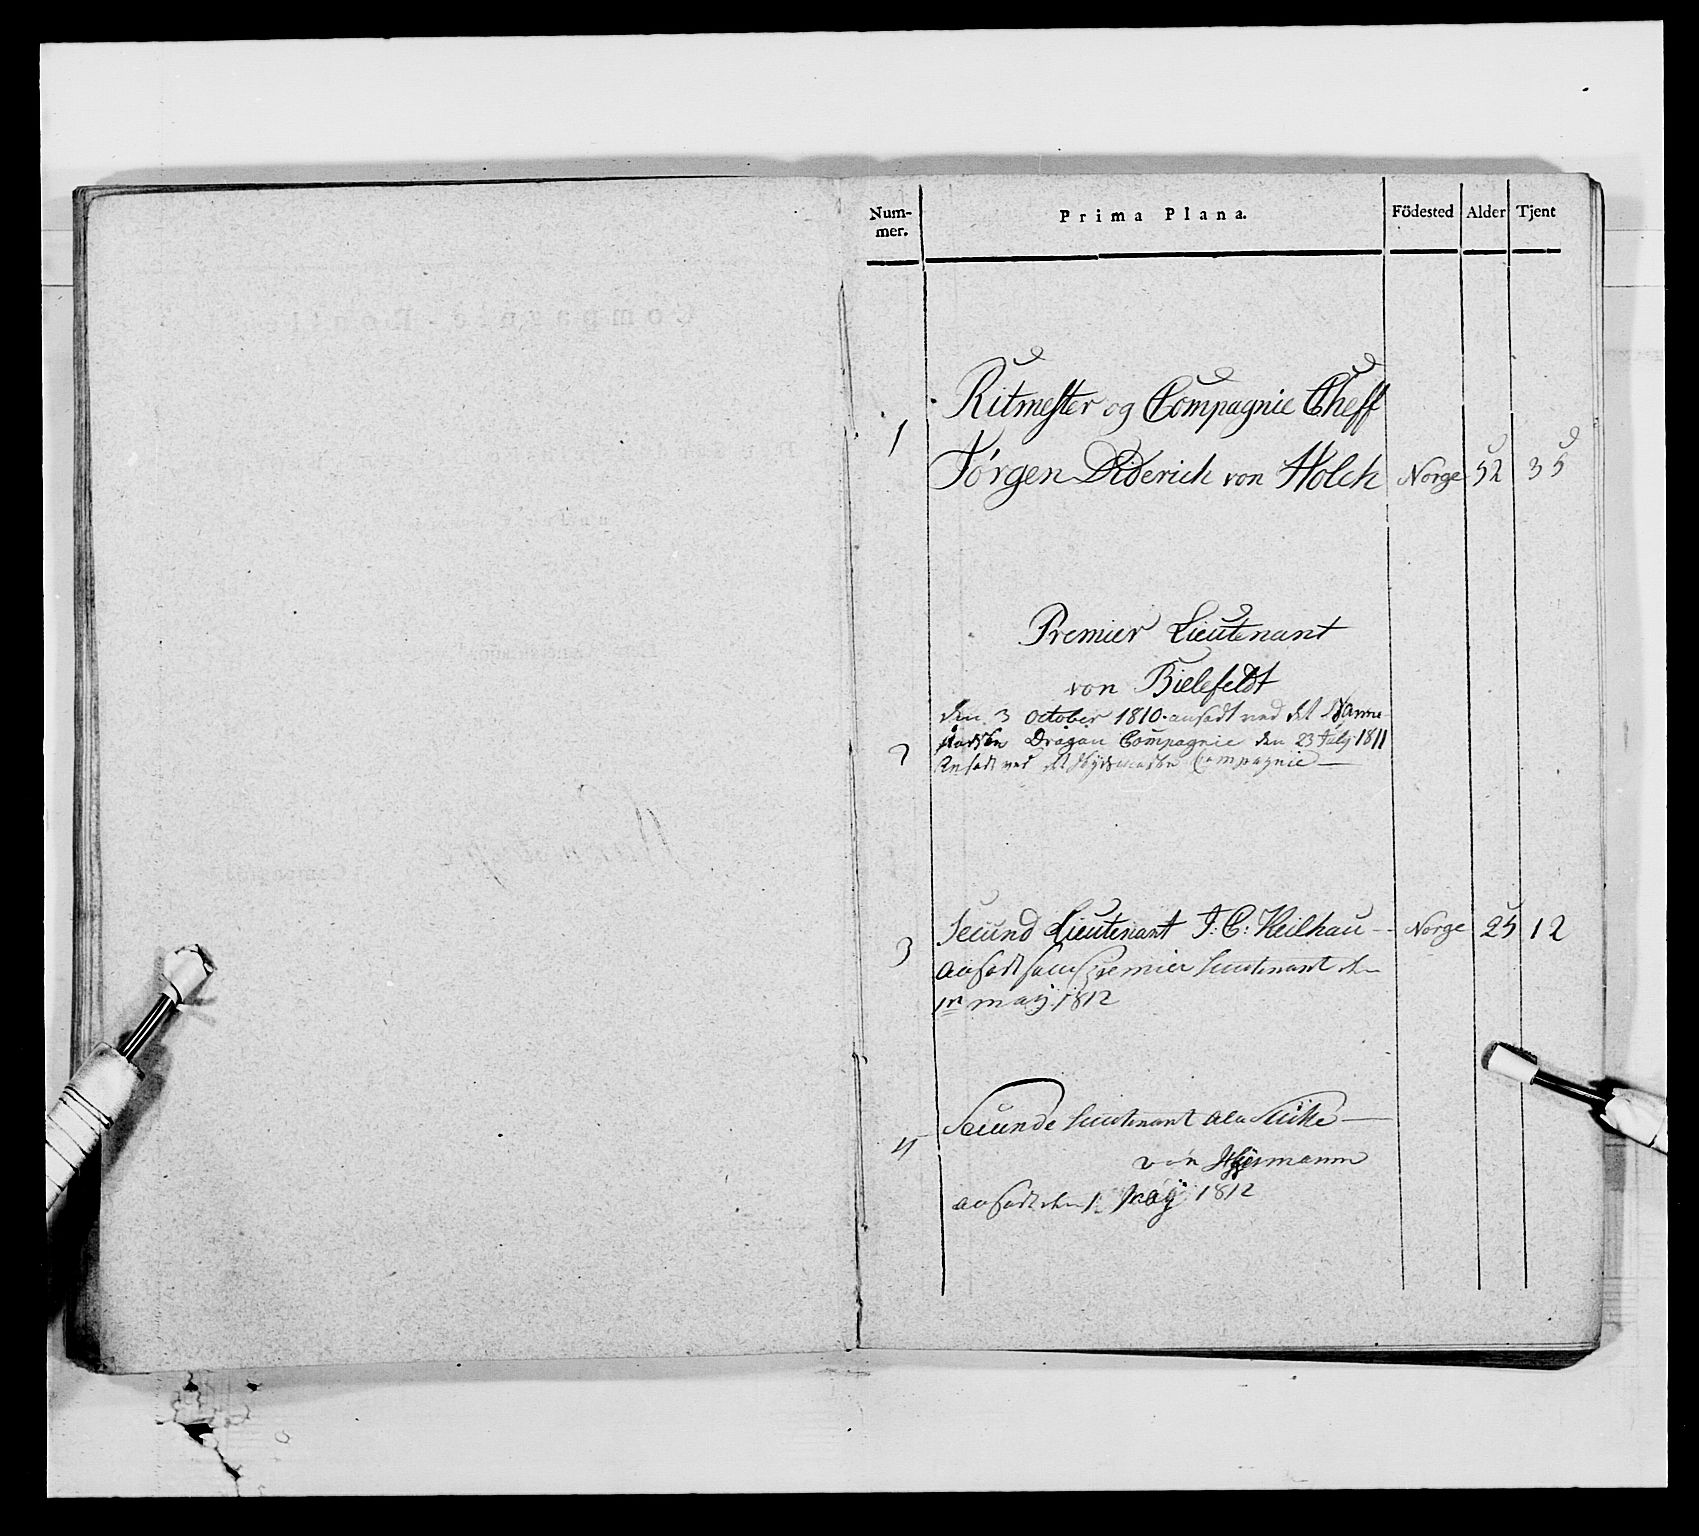 Num-
mer.
Prima Plana.
Födested
Alder
Tjent
Ritmester og Compagnie Cheff
1
Jörgen Diderich von Holck Norge 52 35
Premier Lieutenant
von Bielefeldt
den 3 October 1810. ansadt ved det
Dragon Compagnie den 23 July 1811
2
Ansadt ved det Compagnie
Secund Lieutenant J: C: Keilhau - Norge 25 12
3
ansadt som Premier Lieutenant den
1ste may 1812
Secunde Lieutenant ala Suite
4
von
ansadt den 1. May 1812